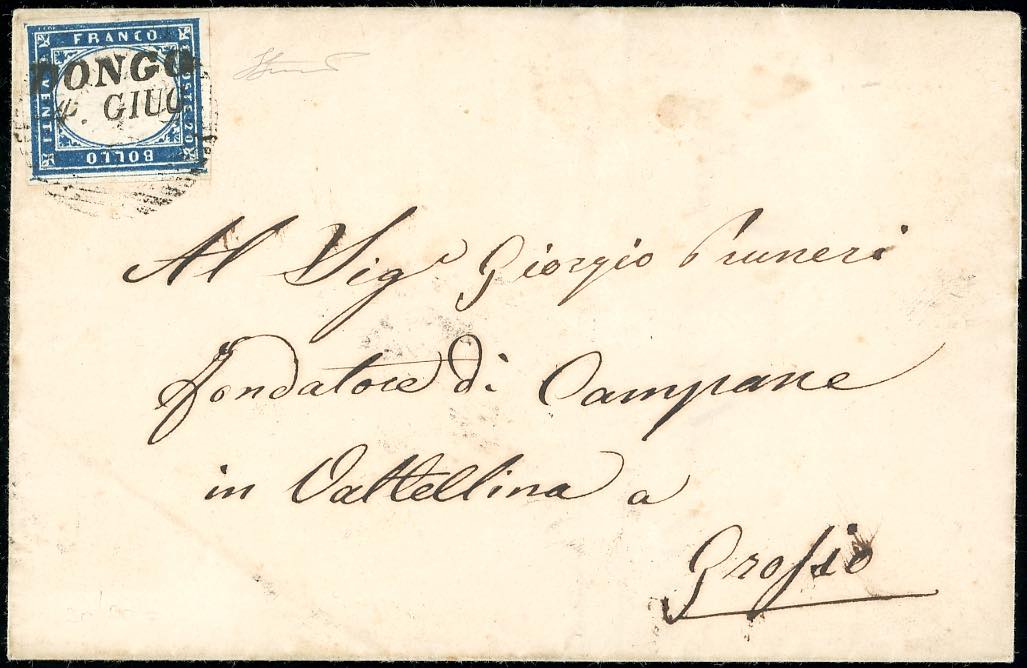 FRANCO
POSTE 20
BOLLO
VENTI
DONGO
GIUG
Al Sigr Giorgio Pruneri
fondatore di Campane
in Valtellina a
Grosio